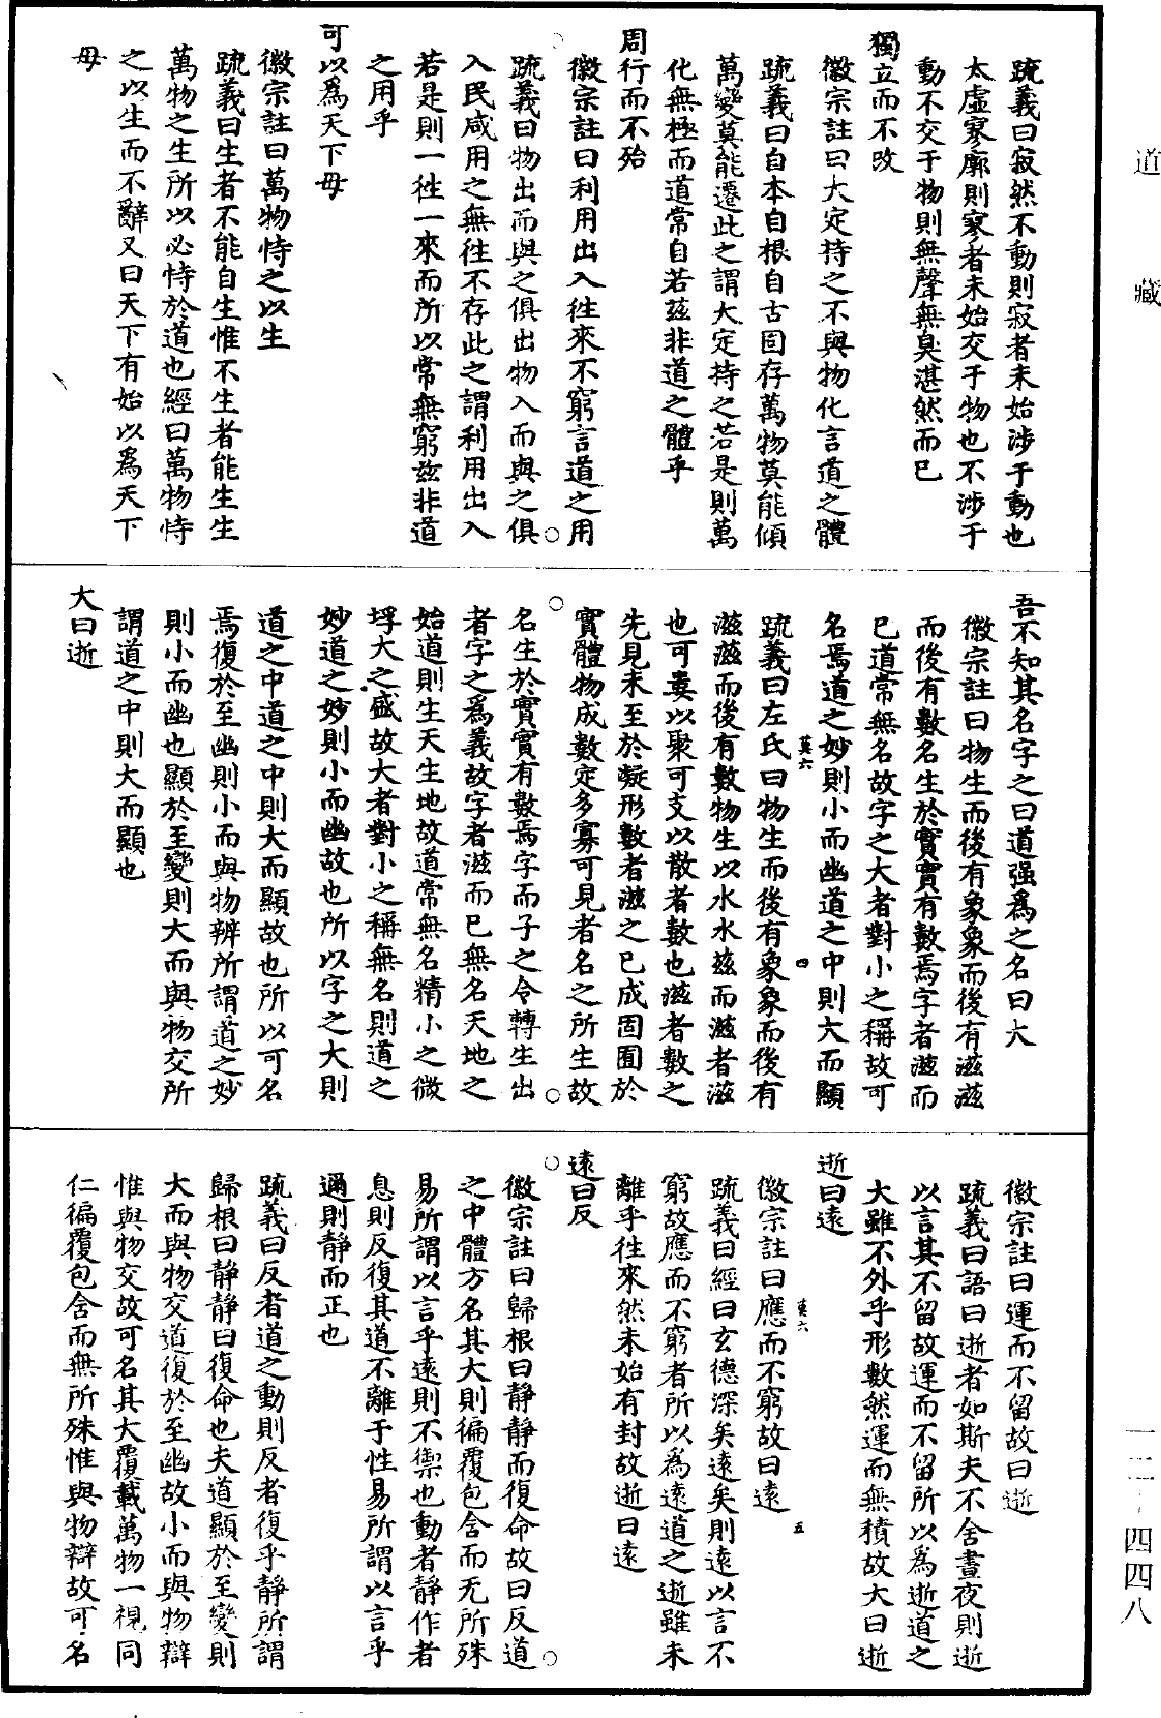 道藏
疏義曰寂然不動則寂者未始涉于動也
太虛寥廓則寥者未始交于物也不涉于
動不交于物則無聲無臭湛然而已
獨立而不改
徽宗註曰大定持之不與物化言道之體
疏義曰自本自根自古固存萬物莫能傾
萬變莫能遷此之謂大定持之若是則萬
化無極而道常自若茲非道之體乎
周行而不殆
徽宗註曰利用出入徃來不窮言道之用
疏義曰物出而與之俱出物入而與之俱
入民咸用之無往不存此之謂利用出入
若是則一徃一來而所以常無窮茲非道
之用乎
可以爲天下母
徽宗註曰萬物恃之以生
疏義曰生者不能自生惟不生者能生生
萬物之生所以必恃於道也經曰萬物恃
之以生而不辭又曰天下有始以爲天下
母
吾不知其名字之曰道强爲之名曰大
徽宗註曰物生而後有象象而後有滋滋
而後有數名生於實實有數焉字者滋而
已道常無名故字之大者對小之稱故可
名焉道之妙則小而幽道之中則大而顯
莫六 四
疏義曰左氏曰物生而後有象象而後有
滋滋而後有數物生以水水茲而滋者滋
也可婁以聚可支以散者數也滋者數之
先見未至於凝形數者滋之已成固囿於
實體物成數定多寡可見者名之所生故
名生於實實有數焉字而子之令轉生出
者字之爲義故字者滋而已無名天地之
始道則生天生地故道常無名精小之微
垺大之盛故大者對小之稱無名則道之
妙道之妙則小而幽故也所以字之大則
道之中道之中則大而顯故也所以可名
焉復於至幽則小而與物辨所謂道之妙
則小而幽也顯於至變則大而與物交所
謂道之中則大而顯也
大曰逝
徽宗註曰運而不留故曰逝
疏義曰語曰逝者如斯夫不舍晝夜則逝
以言其不留故運而不留所以爲逝道之
大雖不外乎形數然運而無積故大曰逝
逝曰遠
莫六 五
徽宗註曰應而不窮故曰遠
疏義曰經曰玄德深矣遠矣則遠以言不
窮故應而不窮者所以爲遠道之逝雖未
離乎徃來然未始有封故逝曰遠
遠曰反
徽宗註曰歸根曰靜靜而復命故曰反道
之中體方名其大則徧覆包含而无所殊
易所謂以言乎遠則不禦也動者靜作者
息則反復其道不離于性易所謂以言乎
邇則靜而正也
疏義曰反者道之動則反者復乎靜所謂
歸根曰靜靜曰復命也夫道顯於至變則
大而與物交道復於至幽故小而與物辯
惟與物交故可名其大覆載萬物一視同
仁徧覆包含而無所殊惟與物辯故可名
一二－四四八